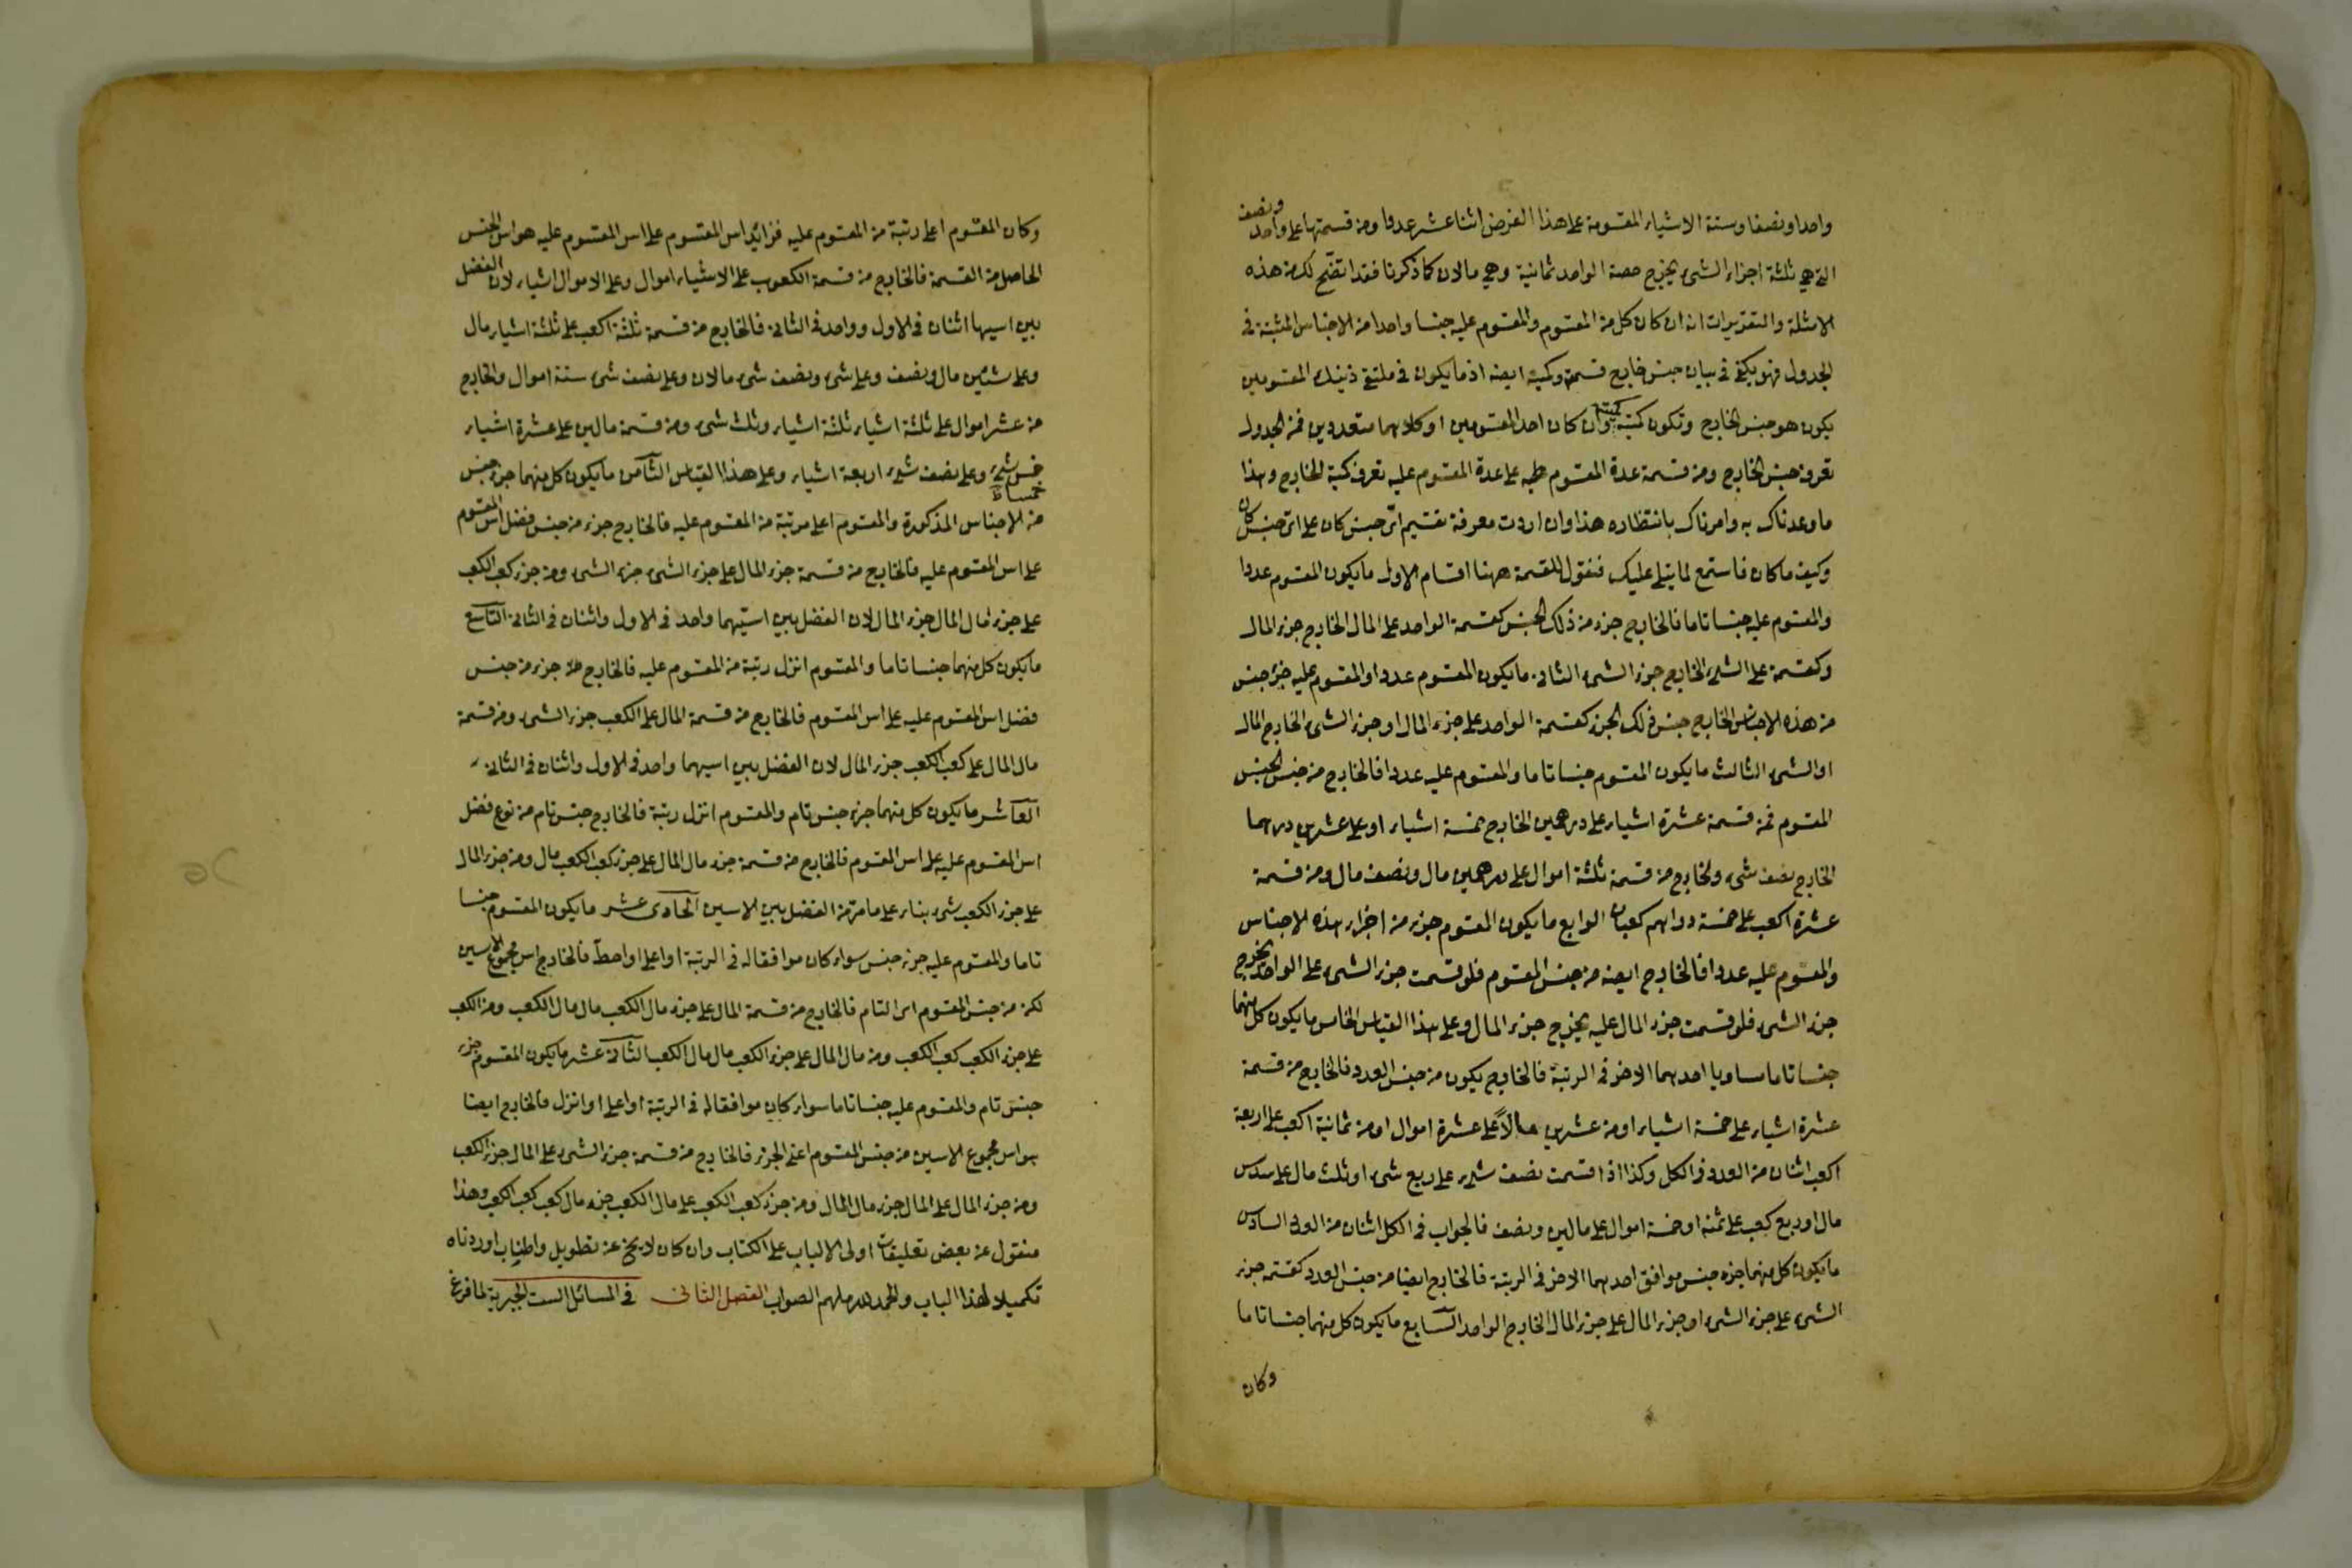 واحدا ونصفا وستة الاشياء المقسومة على هذا الفرض اثنا عشر عددا ومن قسمتها على واحد ونصف
التي هي ثلثة اجزاء الشىء يخرج حصة الواحد ثمانية وهي مالان كما ذكرنا فقد اتضح لك من هذه
الامثلة والتقريرات انه ان كان كل من المقسوم والمقسوم عليه جنسا واحدا من الاجناس المثبتة في
الجدول فهو يكفي في بيان جنس خارج قسمة وكمية ايضه اذ ما يكون في ملتقى ذينك المقسومين
يكون هو جنس الخارج وتكون كميته كميته وان كان احد المقسومين او كلاهما متعددين فمن الجدول
تعرف جنس الخارج ومن قسمة عدة المقسوم على عدة المقسوم عليه تعرف كمية الخارج وهذا
ما وعدناك به وامرناك بانتظاره هذا وان اردت معرفة تقسيم اىّ جنس كان على اىّ جنس كان
وكيف ما كان فاستمع لما يتلى عليك فنقول للقسمة ههنا اقسام الاول ما يكون المقسوم عددا
والمقسوم عليه جنسا تاما فالخارج جزء من ذلك الجنس كقسمة الواحد على المال الخارج جزء المال
وكقسمة على الشىء الخارج جزء الشىء الثانى ما يكون المقسوم عددا والمقسوم عليه جزء جنس
من هذه الاجناس الخارج جنس ذلك الجزء كقسمة الواحد على جزء المال او جزء الشىء الخارج المال
او الشىء الثالث ما يكون المقسوم جنسا تاما والمقسوم عليه عددا فالخارج من جنس الجنس
المقسوم فمن قسمة عشرة اشياء على درهمين الخارج خمسة اشياء او على عشرين درهما
الخارج نصف شىء والخارج من قسمة ثلثة اموال على درهمين مال ونصف مال ومن قسمة
عشرة اكعب على خمسة دراهم كعبان الرابع ما يكون المقسوم جزء من اجزاء هذه الاجناس
والمقسوم عليه عددا فالخارج ايضه من جنس المقسوم فلو قسمت جزء الشىء على الواحد يخرج
جزء الشىء فلو قسمت جزء المال عليه يخرج جزء المال وعلى هذا القياس الخامس ما يكون كل منهما
جنسا تاما مساويا احدهما الاخر في الرتبة فالخارج يكون من جنس العدد فالخارج من قسمة
عشرة اشياء على خمسة اشياء او من عشرين مالاً على عشرة اموال او من ثمانية اكعب على اربعة
اكعب اثنان من العدد في الكل وكذا اذا قسمت نصف شىء على ربع شىء او ثلث مال على سدس
مال او ربع كعب على ثمنه او خمسة اموال على مالين ونصف فالجواب في الكل اثنان من العدد السادس
ما يكون كل منهما جزء جنس موافق احدهما الاخر في الرتبة فالخارج ايضا من جنس العدد كقسمة جزء
الشىء على جزء الشىء او جزء المال على جزء المال الخارج الواحد السابع ما يكون كل منهما جنسا تاما
وكان
وكان المقسوم اعلى رتبة من المقسوم عليه فزائد اس المقسوم على اس المقسوم عليه هو اس الجنس
الحاصل من القسمة فالخارج من قسمة الكعوب على الاشياء اموال وعلى الاموال اشياء لان الفضل
بين اسيهما اثنان في الاول وواحد في الثانى فالخارج من قسمة ثلثة اكعب على ثلثة اشياء مال
وعلى شيئين مال ونصف وعلى شىء ونصف شىء مالان وعلى نصف شىء ستة اموال والخارج
من عشر اموال على ثلثة اشياء ثلثة اشياء وثلث شىء ومن قسمة مالين على عشرة اشياء
خمس شىء وعلى نصف شىء اربعة اشياء وعلى هذا القياس الثامن ما يكون كل منهما جزء جنس
من الاجناس المذكورة والمقسوم اعلى مرتبة من المقسوم عليه فالخارج جزء من جنس فضل اس المقسوم
على اس المقسوم عليه فالخارج من قسمة جزء المال على جزء الشىء جزء الشىء ومن جزء كعب الكعب
على جزء مال المال جزء المال لان الفضل بين اسيّهما واحد في الاول واثنان في الثانى التاسع
ما يكون كل منهما جنسا تاما والمقسوم انزل رتبة من المقسوم عليه فالخارج جزء من جنس
فضل اس المقسوم عليه على اس المقسوم فالخارج من قسمة المال على الكعب جزء الشىء ومن قسمة
مال المال على كعب الكعب جزء المال لان الفضل بين اسيهما واحد في الاول واثنان في الثانى
العاشر ما يكون كل منهما جزء جنس تام والمقسوم انزل رتبة فالخارج جنس تام من نوع فضل
اس المقسوم عليه على اس المقسوم فالخارج من قسمة جزء مال المال على جزء كعب الكعب مال ومن جزء المال
على جزء الكعب شىء بناء على ما مر من الفضل بين الاسين الحادى عشر ما يكون المقسوم جنسا
تاما والمقسوم عليه جزء جنس سواء كان موافقا له في الرتبة او اعلى او احط فالخارج اس مجموع الاسين
لكن من جنس المقسوم اى التام فالخارج من قسمة المال على جزء مال الكعب مال مال الكعب ومن الكعب
على جزء الكعب كعب الكعب ومن مال المال على جزء الكعب مال مال الكعب الثانى عشر ما يكون المقسوم جزء
جنس تام والمقسوم عليه جنسا تاما سواء كان موافقا له في الرتبة او اعلى او انزل فالخارج ايضا
هو اس مجموع الاسين من جنس المقسوم اعنى الجزء فالخارج من قسمة جزء الشىء على المال جزء الكعب
ومن جزء المال على المال جزء مال المال ومن جزء كعب الكعب على مال الكعب جزء مال كعب كعب الكعب وهذا
منقول عن بعض تعليقات اولى الالباب على الكتاب وان كان لا يخ عن تطويل واطناب اوردناه
تكميلا لهذا الباب والحمد لله ملهم الصواب الفصل الثانى في المسائل الست الجبرية لما فرغ